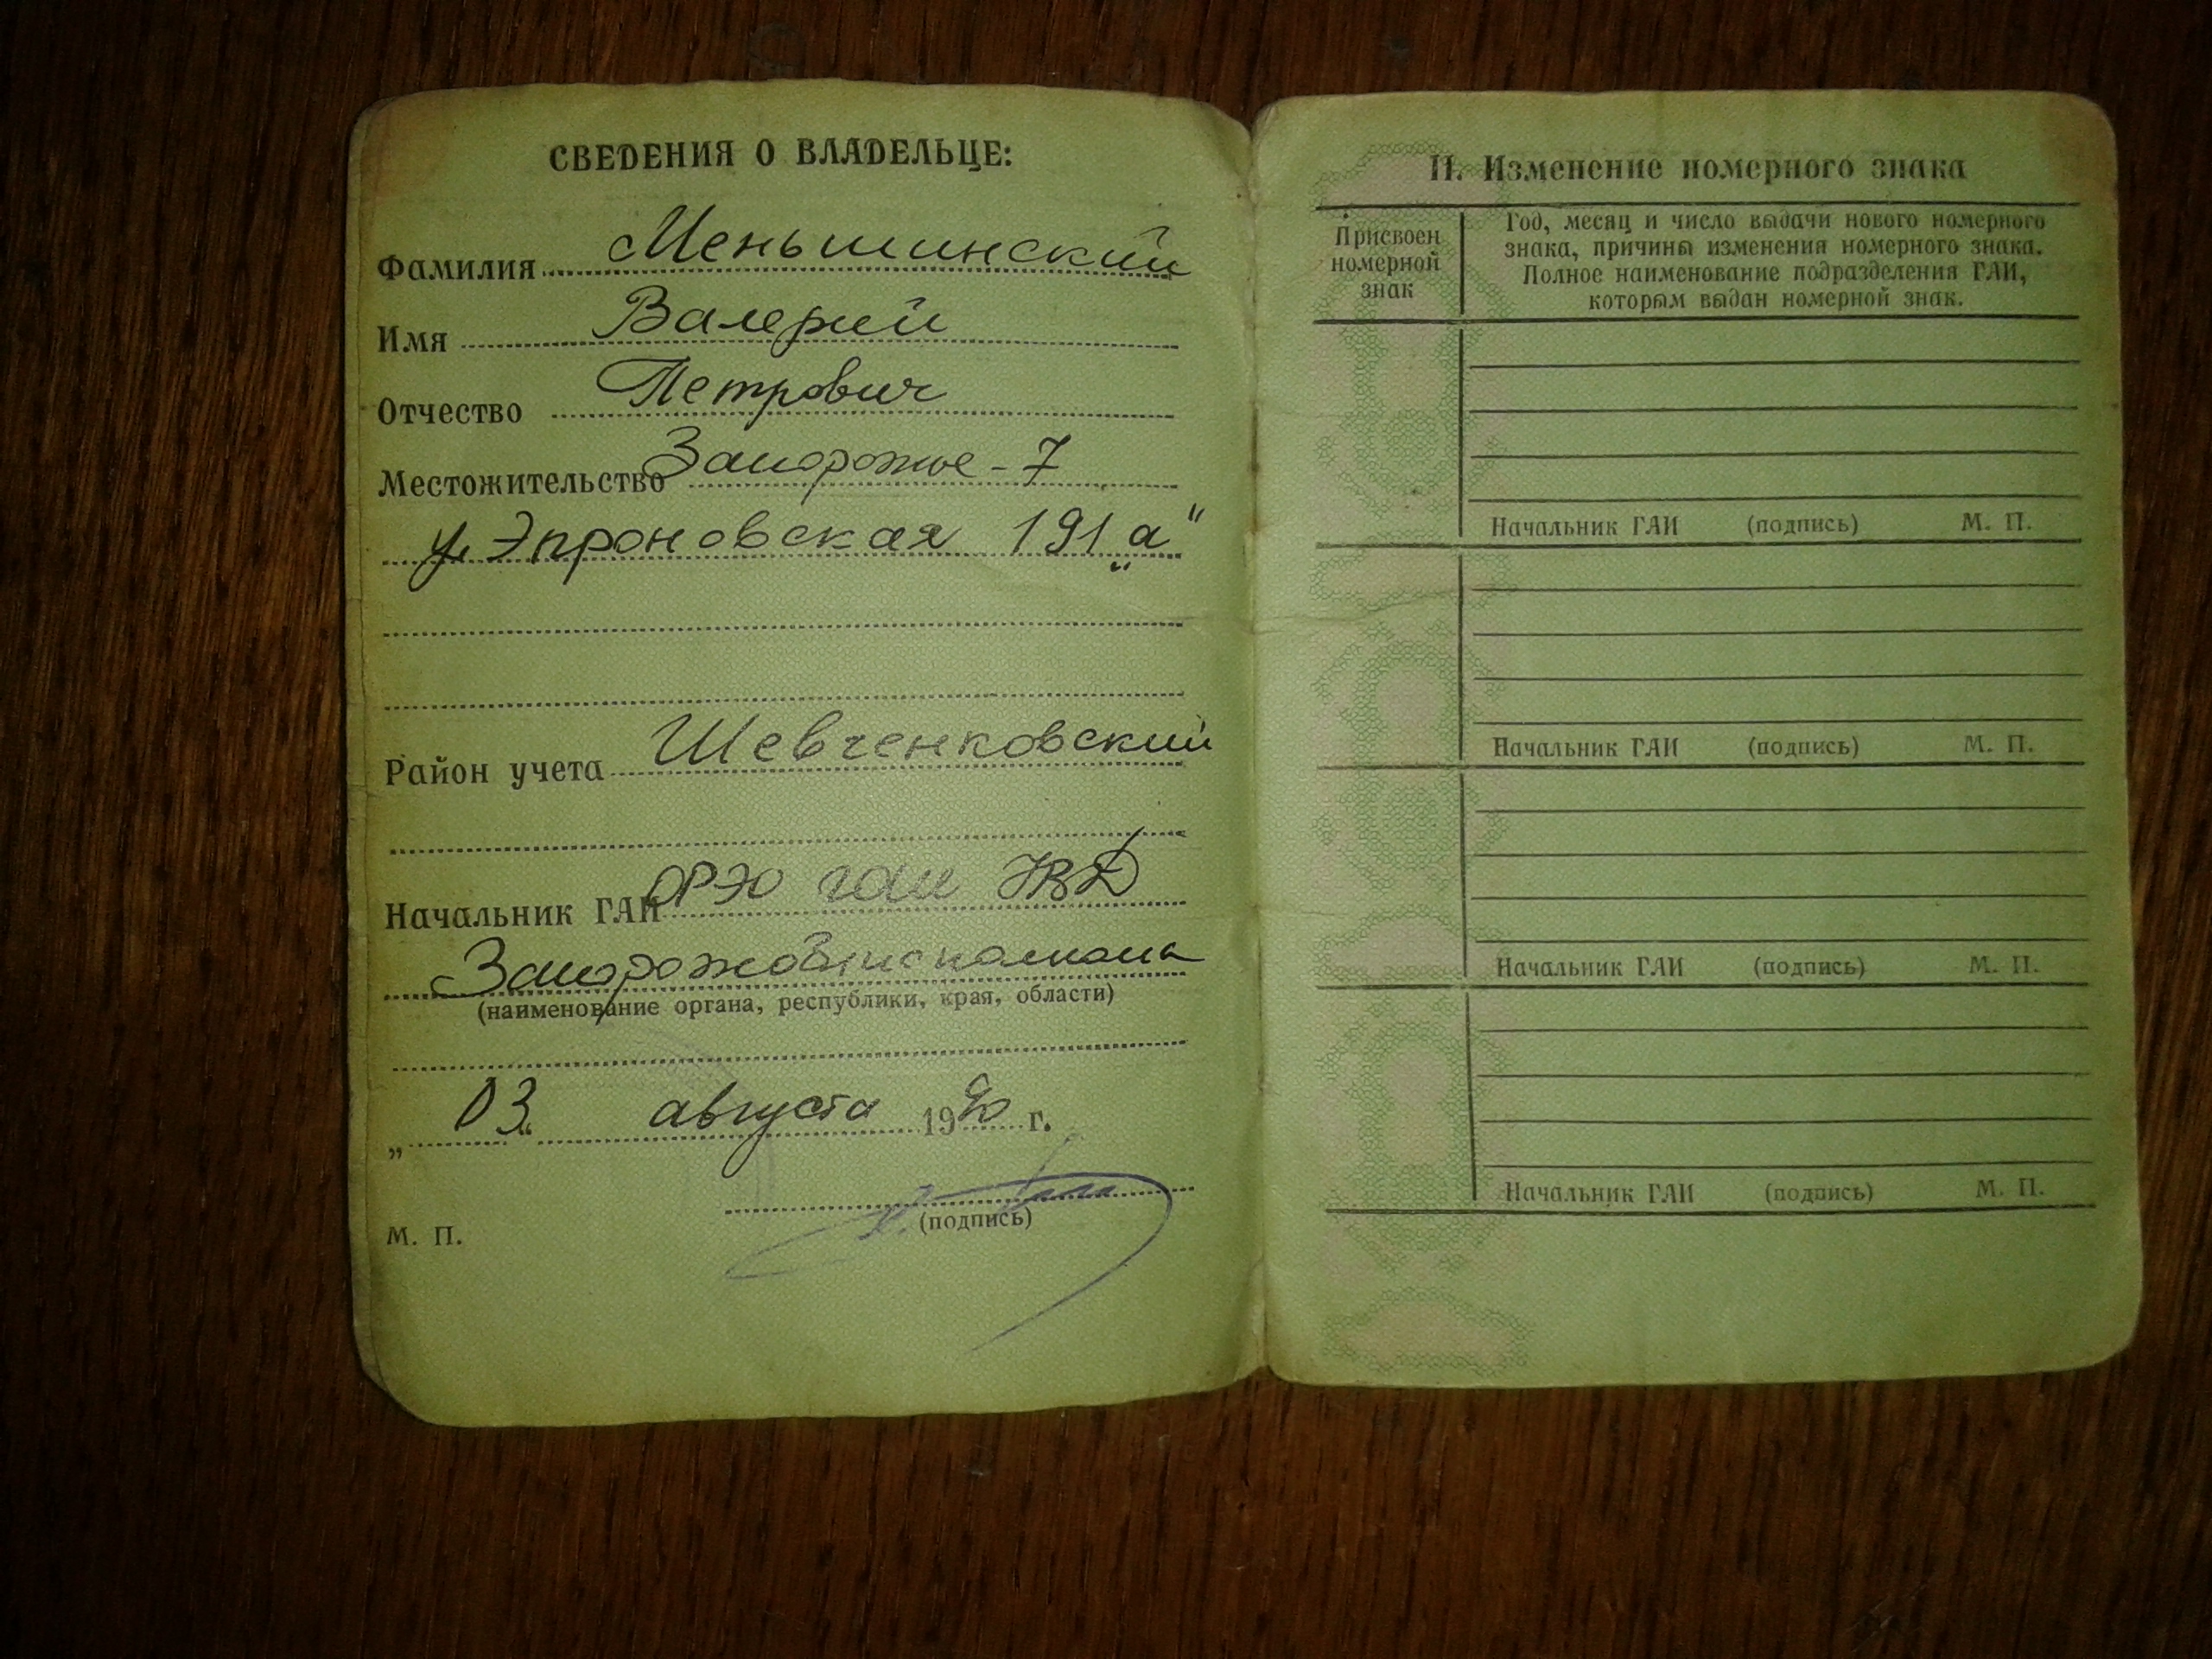 СВЕДЕНИЯ О ВЛАДЕЛЬЦЕ:
Фамилия Меньшинский
Имя Валерий
Отчество Петрович
Местожительство Запорожье - 7
ул Эпроновская 191 „а“
Район учета Шевченковский
Начальник ГАИ ОРЭО ГАИ УВД
(наименование органа, республики, края, области)
„ 03 “ августа 1990 г.
(подпись)
М. П.
II. Изменение номерного знака
Присвоен номерной знак
Год, месяц и число выдачи нового номерного
знака, причины изменения номерного знака.
Полное наименование подразделения ГАИ,
которым выдан номерной знак.
Начальник ГАИ (подпись) М. П.
Начальник ГАИ (подпись) М. П.
Начальник ГАИ (подпись) М. П.
Начальник ГАИ (подпись) М. П.